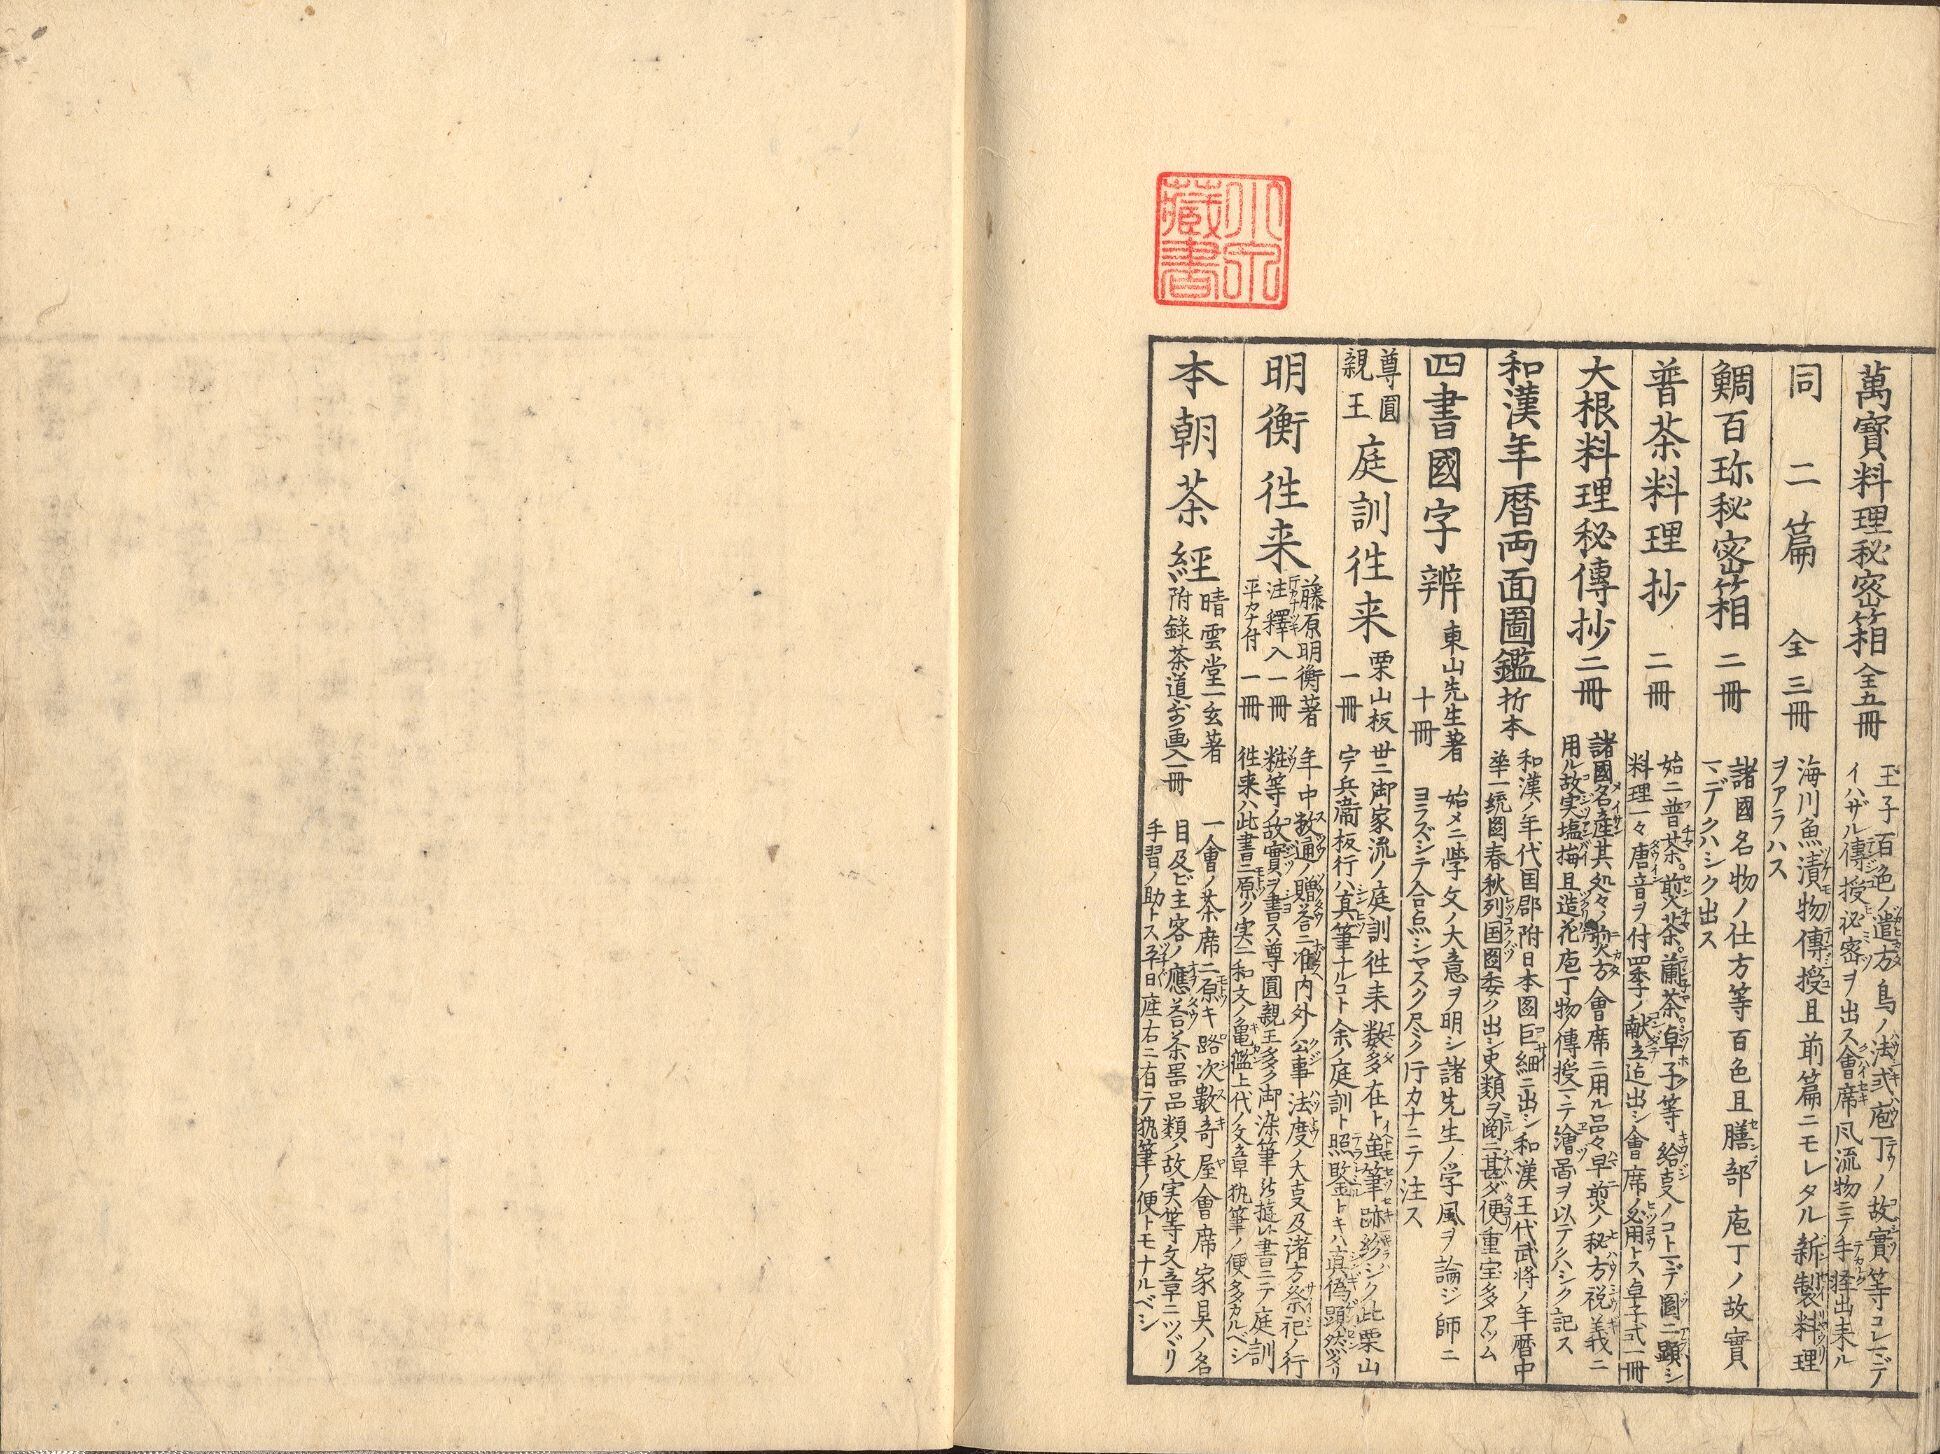 萬寶料理秘密箱 全五冊
玉子百色ノ遣方鳥ノ法式庖丁ノ故實等コレマデ
イハザル傳授秘密ヲ出ス會席風流物ニテ手軽出来ル
同 二篇 全三冊
海川魚漬物傳授且前篇ニモレタル新製料理
ヲアラハス
鯛百珎秘密箱 二冊
諸國名物ノ仕方等百色且膳部庖丁ノ故實
マデクハシク出ス
普茶料理抄 二冊
始ニ普茶。煎茶。蘭茶。卓子等給夋ノコトマデ圖ニ顕シ
料理一々唐音ヲ付四季ノ献立迄出シ會席ノ必用トス卓子式一冊
大根料理秘傳抄 二冊
諸國名産其処々ノ煎方會席ニ用ル品々早煎ノ秘方祝義ニ
用ル故実塩梅且造花庖丁物ノ傳授マテ繪啚ヲ以テクハシク記ス
和漢年暦両面圖鑑 折本
和漢ノ年代国郡附日本圖巨細ニ出シ和漢王代武将ノ年暦中
華一統圖春秋列国圖委ク出シ史類ヲ閲ニ甚ダ便重宝多アツム
四書國字辨 東山先生著 十冊
始メニ学文ノ大意ヲ明シ諸先生ノ学風ヲ論ジ師ニ
ヨラズシテ合点シヤスク尽ク行カナニテ注ス
尊圓親王 庭訓徃来 栗山板 一冊
世ニ御家流ノ庭訓徃来数多在ト虽筆跡紛シク此栗山
宇兵衞板行ハ真筆ナルコト余ノ庭訓ト照鑒トキハ真偽顕然タリ
明衡徃来 藤原明衡著
注釋入 一冊
平カナ付 一冊
年中数通ノ贈答ニ准内外公事法度ノ大夋及諸方祭祀ノ行
粧等ノ故實ヲ書ス尊圓親王多ク御染筆
徃来ハ此書ニ原ク実ニ和文ノ亀鑑上代ノ文章執筆ノ便多カルベシ
本朝茶經 晴雲堂一玄著
附錄茶道書画入一冊
一會ノ茶席ニ原キ路次數奇屋會席家具ノ名
目及ビ主客ノ應答茶噐品類ノ故実等文章ニツヾリ
手習ノ助トス平日座右ニ有テ執筆ノ便トモナルベシ
小宗
藏書